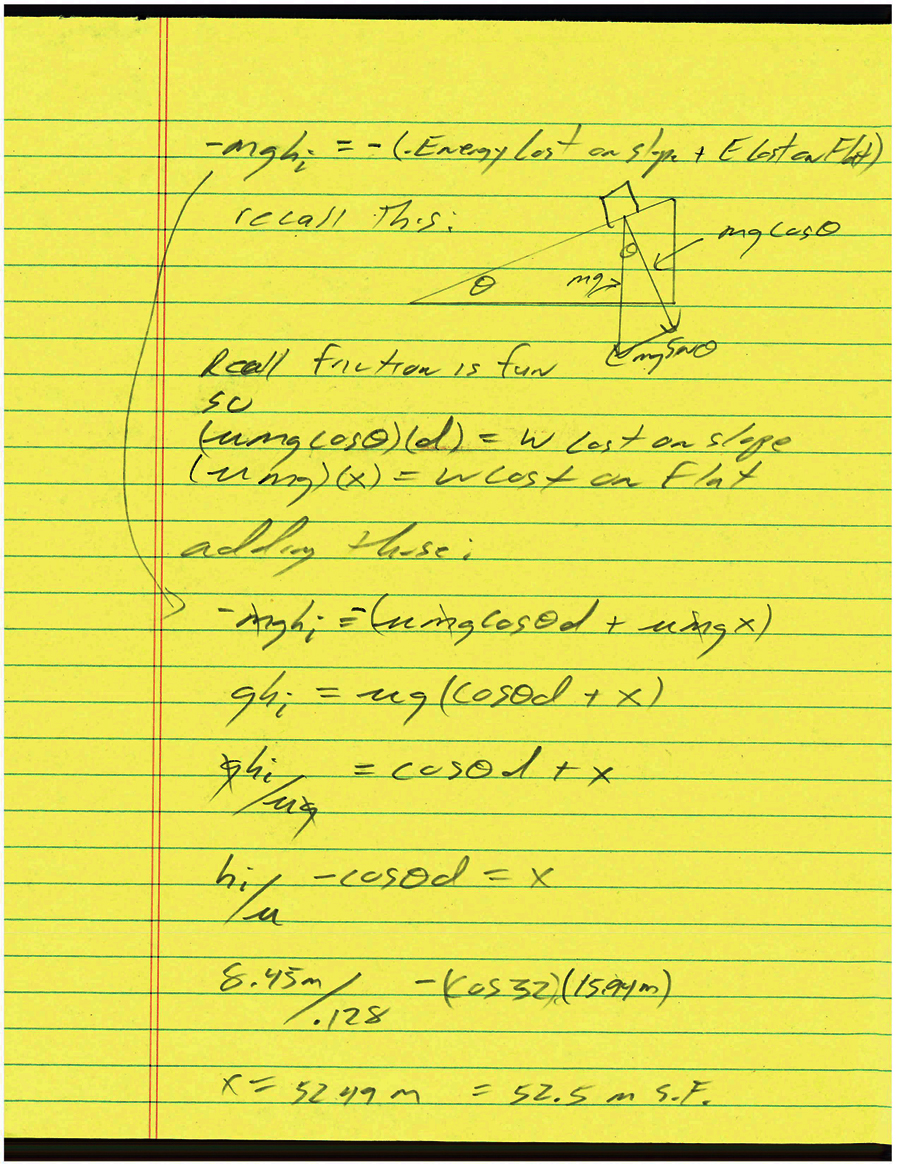 -mghi = -(.Energy Lost on slope + E Lost on Flat)
recall this:
θ
mg cosθ
θ
mg
mg sinθ
Recall friction is fun
so
(umg cosθ)(d) = W Lost on slope
(u mg)(x) = W Lost on Flat
adding these:
-mghi = -(umg cosθd + umg x)
ghi = ug (cosθd + x)
ghi/ug = cosθd + x
hi/u - cosθd = x
8.45m/.128 - (cos 32)(15.94m)
x = 52.49 m = 52.5 m S.F.